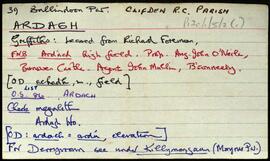 39 Ballinderry Par. CLIFDEN R.C. PARISH
P120/1/5/2(1)
ARDAGH
Griffiths: Leased from Richard Foreman,
FNB Ardach, high field. Prop. Aug. John O'Neile,
Bunowen Castle. Agent John Mullin, B'conneely
[O.D. achadh, m., field]
O.S. LIST ARDAGH
Check megalith
Ardagh Ho.
[O.D: ardach = airde, elevation]
For Derrygowan see under Killymongaun (Moyrus Par.)